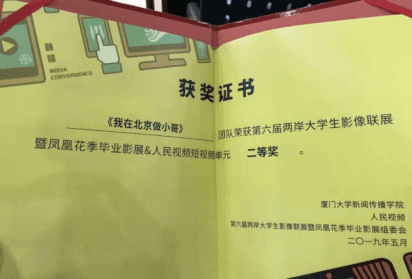 融媒
MEDIA
CONVERGENCE
获奖证书
《我在北京做小哥》 团队荣获第六届两岸大学生影像联展
暨凤凰花季毕业影展&人民视频短视频单元 二等奖 。
厦门大学新闻传播学院
人民视频
第六届两岸大学生影像联展暨凤凰花季毕业影展组委会
二〇一九年五月